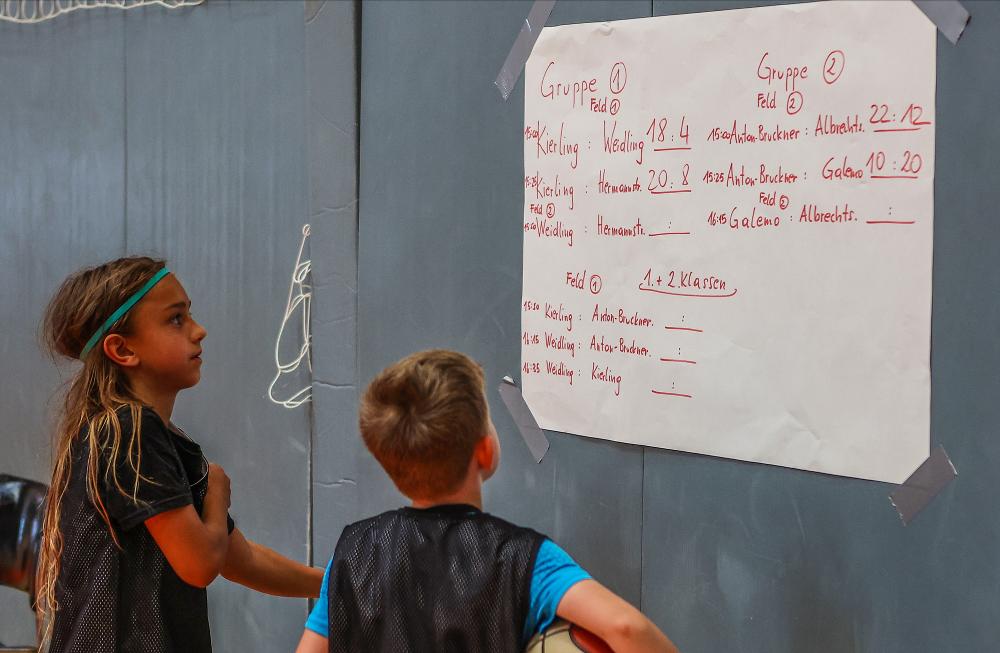 Gruppe 1
Feld 1
15:00 Kierling : Weidling 18 : 4
15:25 Kierling : Hermannstr. 20 : 8
Feld 2
Weidling : Hermannstr. :
Gruppe 2
Feld 2
15:00 Anton-Bruckner : Albrechts. 22 : 12
15:25 Anton-Bruckner : Galemo 10 : 20
Feld
16:15 Galemo : Albrechts. :
Feld 1 1. + 2. Klassen
15:50 Kierling : Anton-Bruckner. :
16:15 Weidling : Anton-Bruckner. :
16:35 Weidling : Kierling :